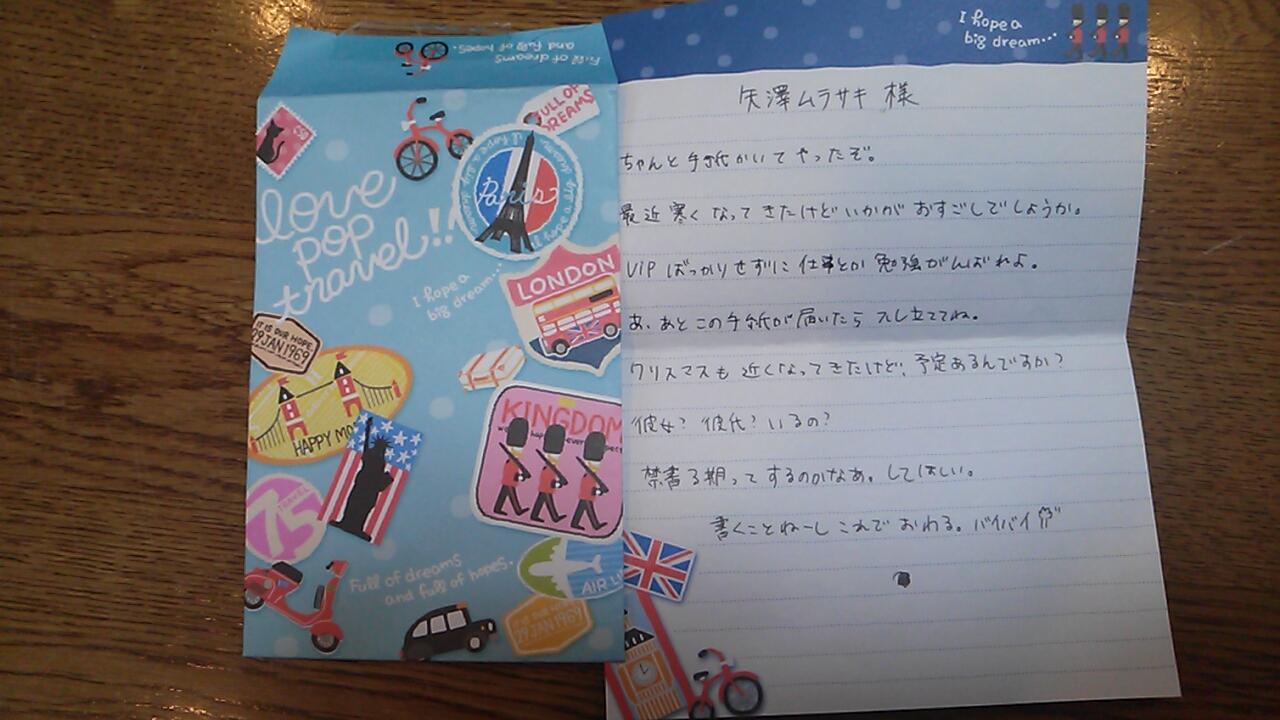 Full of dreams
and full of hopes.
FULL OF
DREAMS
Paris
love
pop
travel!!
I hope a
big dream...
LONDON
IT IS OUR HOPE
29 JAN 1969
HAPPY MO
KINGDOM
TRAVEL
75
Full of dreams
and full of hopes.
AIR LI
29 JAN 1969
I hope a
big dream...
矢澤ムラサキ 様
ちゃんと手紙かいてやったぞ。
最近寒くなってきたけどいかがおすごしでしょうか。
VIPばっかりせずに仕事とか勉強がんばれよ。
あ、あとこの手紙が届いたらスレ立ててね。
クリスマスも近くなってきたけど、予定あるんですか?
彼女? 彼氏? いるの?
禁書3期ってするのかなあ。してほしい。
書くことねーしこれでおわる。バイバイ